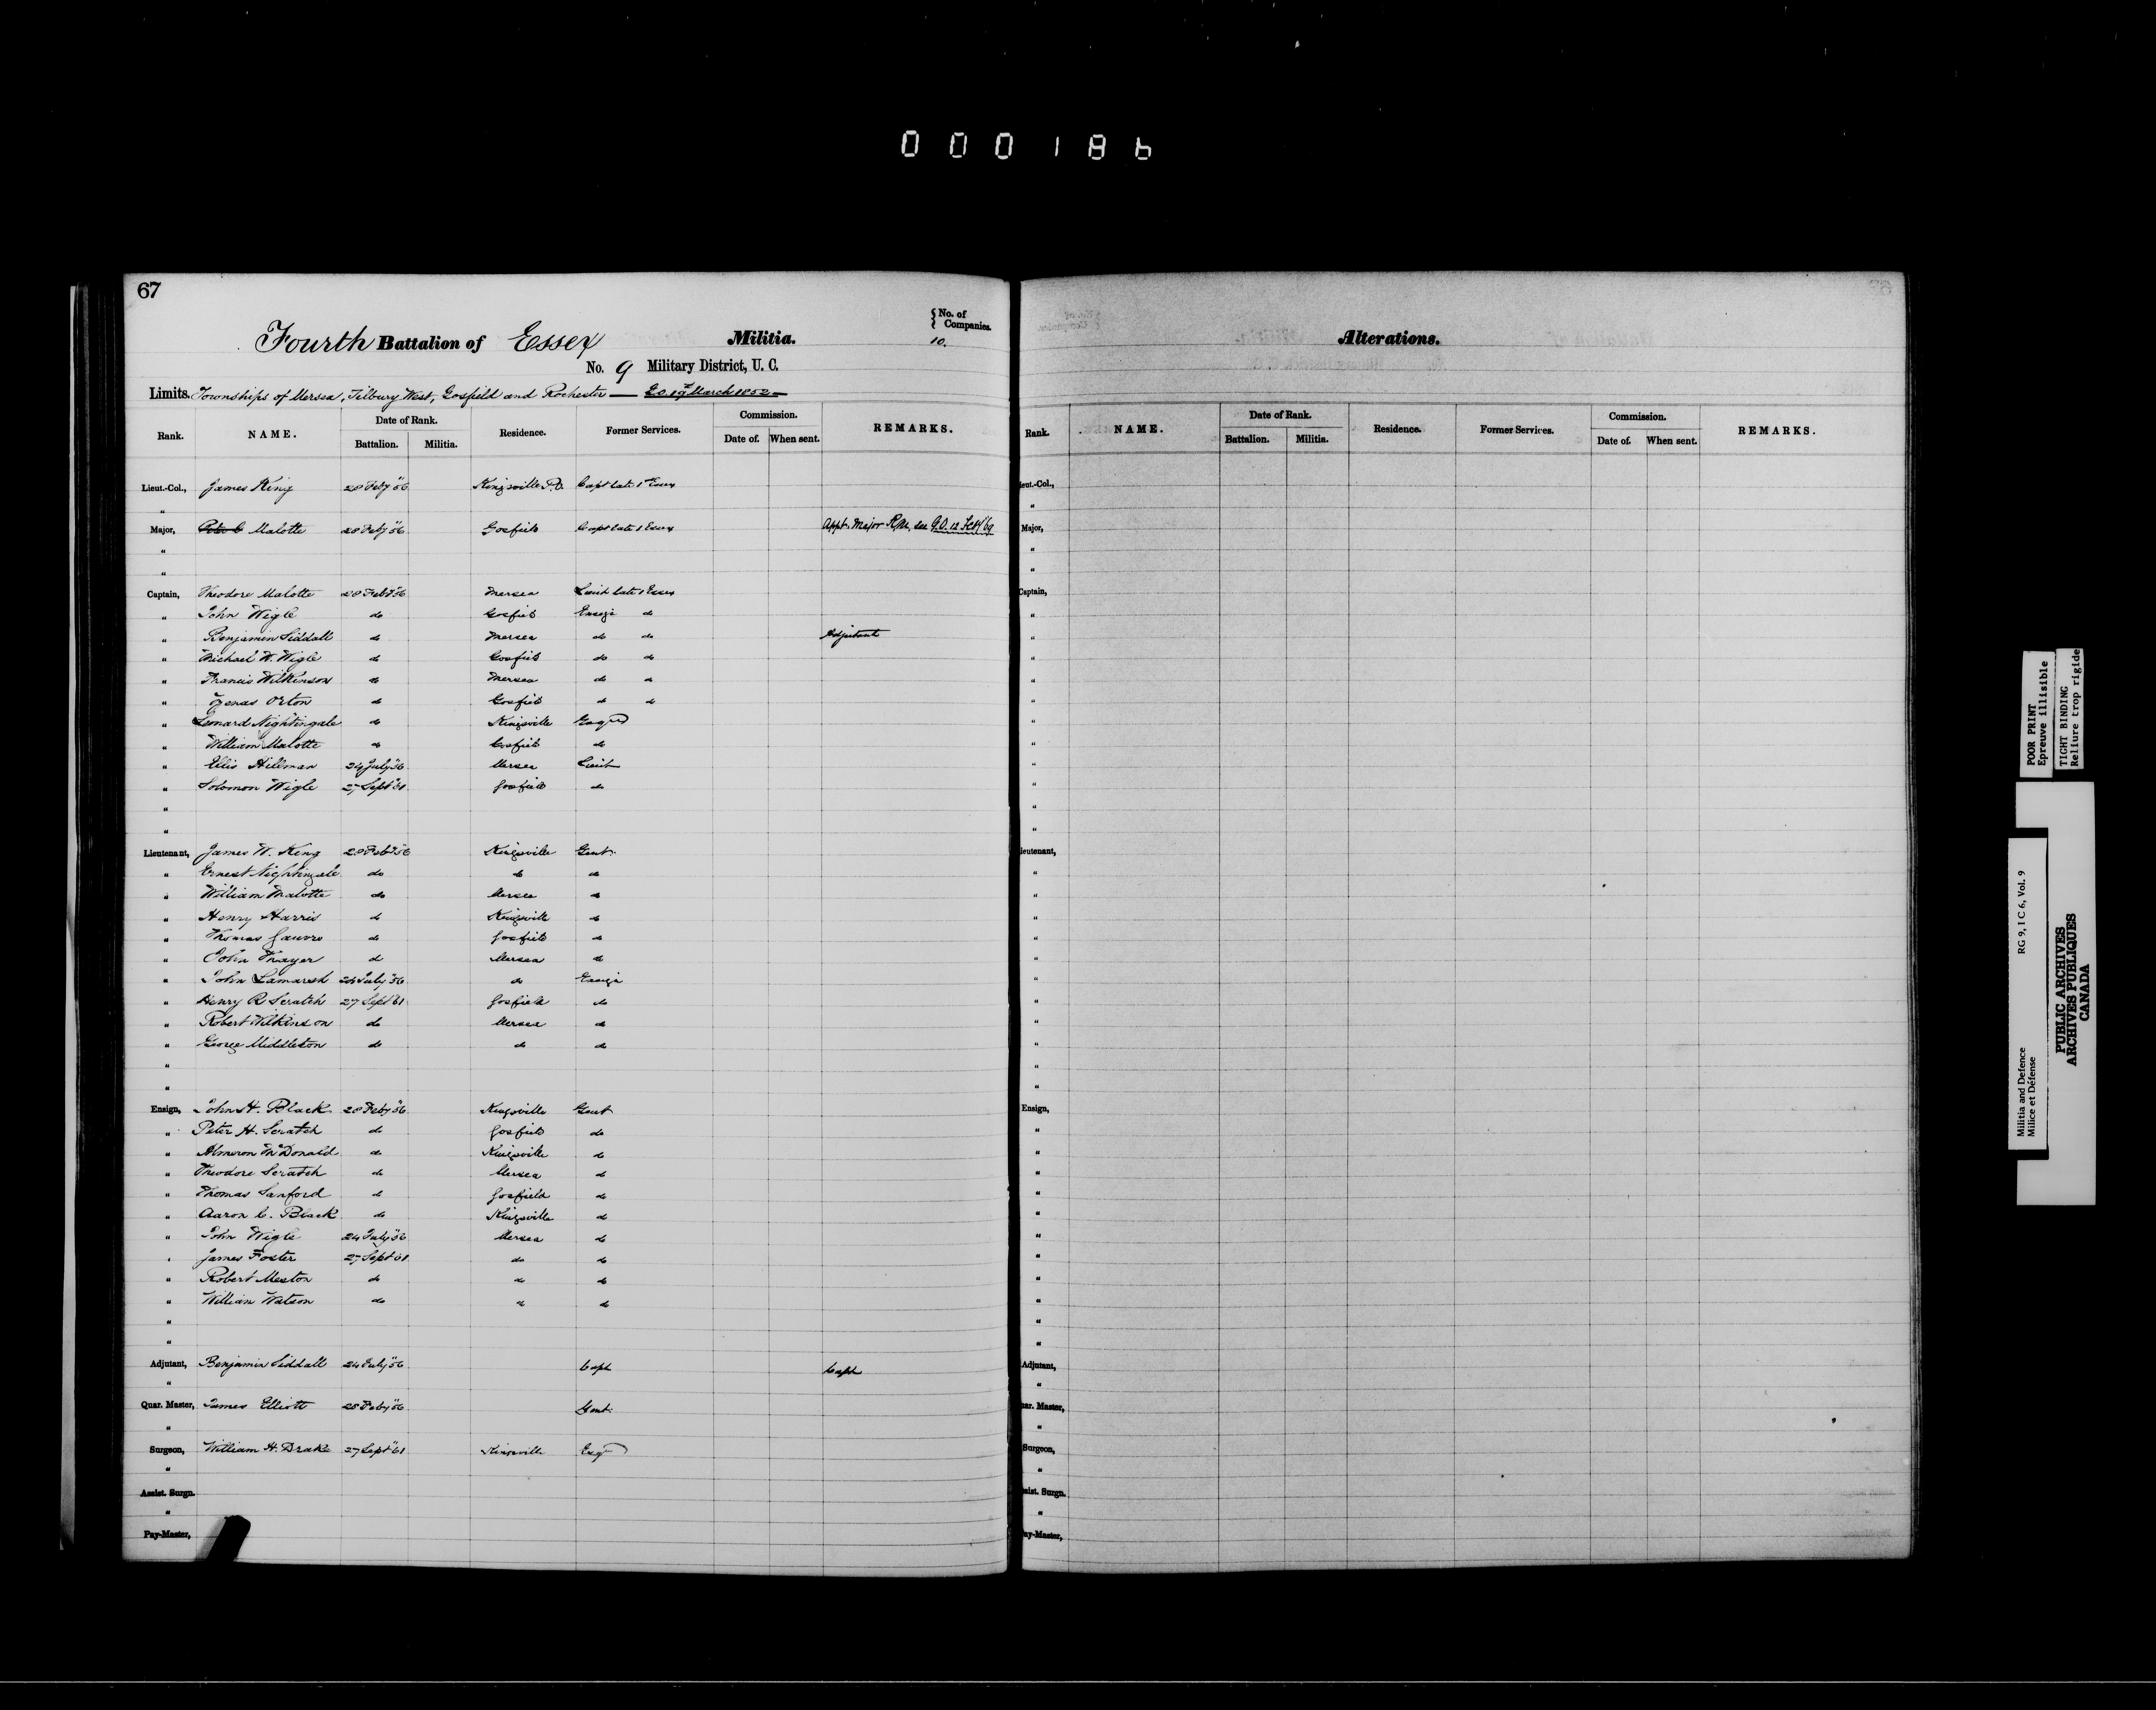 000186
67
{ No. of Companies.
Fourth Battalion of Essex Militia. 10.
No. 9 Military District, U. C.
Limits. Townships of Mersea, Tilbury West, Gosfield and Rochester — G.O. 19 March 1852 —
Rank. NAME. Date of Rank. Battalion. Militia. Residence. Former Services. Commission. Date of. When sent. REMARKS.
Lieut.-Col., James King 28 Feby '56 Kingsville P.O. Capt late 1st Essex
"
Major, Malotte 28 Feby '56 Gosfield Capt late 1 Essex Appt. Major R.M. see G.O. 12 Feby '69
"
"
Captain, Theodore Malotte 28 Feby '56 Mersea Lieut late 1 Essex
" John Wigle do Gosfield Ensign do
" Benjamin Siddall do Mersea do do Adjutant
" Michael W. Wigle do Gosfield do do
" Francis Wilkinson do Mersea do do
" Zenas Orton do Gosfield do do
" Leonard Nightingale do Kingsville Esqre
" William Malotte do Gosfield do
" Ellis Hillman 24 July '56 Mersea Lieut
" Solomon Wigle 27 Sept '61 Gosfield do
"
"
Lieutenant, James W. King 28 Feby '56 Kingsville Gent.
" Ernest Nightingale do do do
" William Malotte do Mersea do
" Henry Harris do Kingsville do
" Thomas do Gosfield do
" John Thayer do Mersea do
" John Lamarsh 24 July '56 do Ensign
" Henry R Scratch 27 Sept '61 Gosfield do
" Robert Wilkinson do Mersea do
" George Middleton do do do
"
"
Ensign, John H. Black 28 Feby '56 Kingsville Gent
" Peter H. Scratch do Gosfield do
" Almeron McDonald do Kingsville do
" Theodore Scratch do Mersea do
" Thomas Sanford do Gosfield do
" Aaron C. Black do Kingsville do
" John Wigle 24 July '56 Mersea do
" James Foster 27 Sept '61 do do
" Robert Meston do do do
" William Watson do do do
"
"
Adjutant, Benjamin Siddall 24 July '56 Capt Capt
"
Quar. Master, James Elliott 28 Feby '56 Gent.
"
Surgeon, William H. Drake 27 Sept '61 Kingsville Esqr
"
Assist. Surgn.
"
Pay-Master,
Alterations.
Rank. NAME. Date of Rank. Battalion. Militia. Residence. Former Services. Commission. Date of. When sent. REMARKS.
ieut.-Col.,
"
Major,
"
"
Captain,
"
"
"
"
"
"
"
"
"
"
"
ieutenant,
"
"
"
"
"
"
"
"
"
"
"
Ensign,
"
"
"
"
"
"
"
"
"
"
"
Adjutant,
"
uar. Master,
"
Surgeon,
"
sist. Surgn.
"
ay-Master,
POOR PRINT
Epreuve illisible
TIGHT BINDING
Reliure trop rigide
Militia and Defence
Milice et Défense
RG 9, I C 6, Vol. 9
PUBLIC ARCHIVES
ARCHIVES PUBLIQUES
CANADA